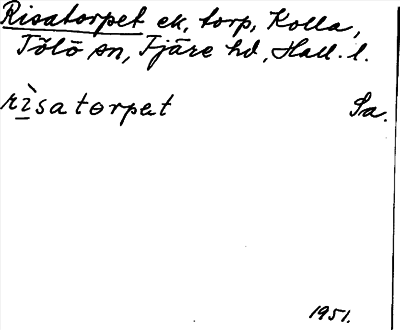 Risatorpet ek, torp, Kolla,
Tölö sn, Fjäre hd, Hall. l.
rìsatorpet Sa.
1951.